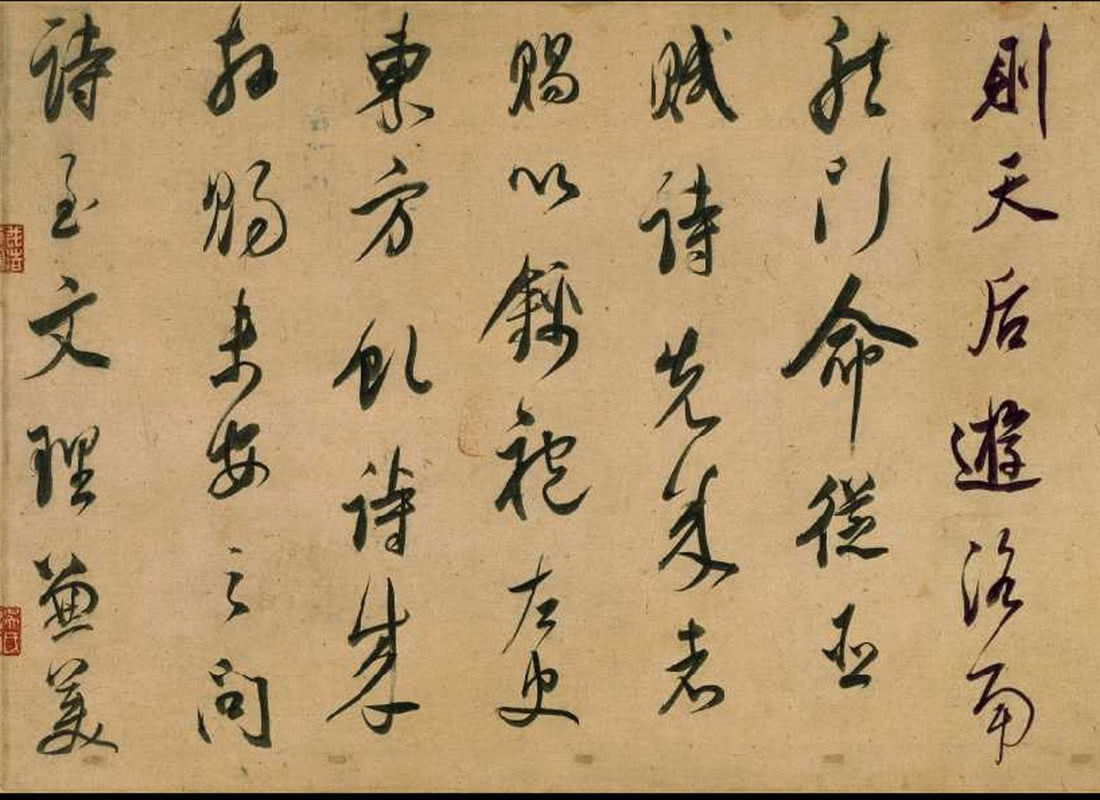 則天后遊洛南
龍門命從臣
賦詩先成者
賜以錦袍左史
東方虬詩成
拜賜未安之問
詩至文理兼美